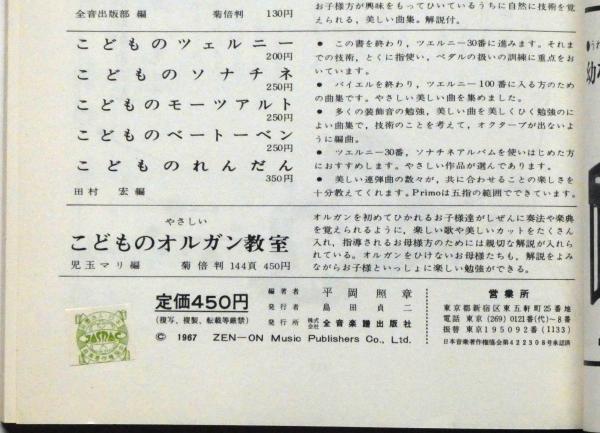 全音出版部 編 菊倍判 130円
お子様方が興味をもってひいているうちに自然に技術を覚
えられる、美しい曲集。解説付。
こどものツェルニー
200円
● この書を終わり、ツエルニー30番に進みます。それま
での技術，とくに指使い，ペダルの扱いの訓練に重点をお
いています。
こどものソナチネ
250円
● バイエルを終わり，ツエルニー100番に入る方のため
の曲集です。やさしい美しい曲を集めました。
こどものモーツアルト
250円
● 多くの装飾音の勉強，美しい曲を美しくひく勉強のに
よい曲集で，技術のことを考えて，オクターブが出ないよう
に編曲。
こどものベートーベン
250円
● ツエルニー30番，ソナチネアルバムを使いはじめた方
におすすめします。やさしい作品が選んであります。
こどものれんだん
350円
● 美しい連弾曲の数々が，共に合わせることの楽しさを
十分教えてくれます。Primoは五指の範囲でできています。
田村 宏 編
やさしい
こどものオルガン教室
児玉マリ編 菊倍判 144頁 450円
オルガンを初めてひかれるお子様達がしぜんに奏法や楽典
を覚えられるように，楽しい歌や美しいカットをたくさん
入れ，指導されるお母様方のためには親切な解説が入れら
れている。オルガンをひけないお母様たちも，解説をよみ
ながらお子様といっしょに楽しい勉強ができる。
定価450円
(複写、複製、転載等厳禁)
編著者 平岡照章
発行者 島田貞二
発行所 株式会社 全音楽譜出版社
© 1967 ZEN-ON Music Publishers Co., Ltd.
営業所
東京都新宿区東五軒町25番地
電話 東京 (269) 0121番(代)～8番
振替 東京195092番 (1133)
日本音楽著作権協会第422308号承認済
JASRAC